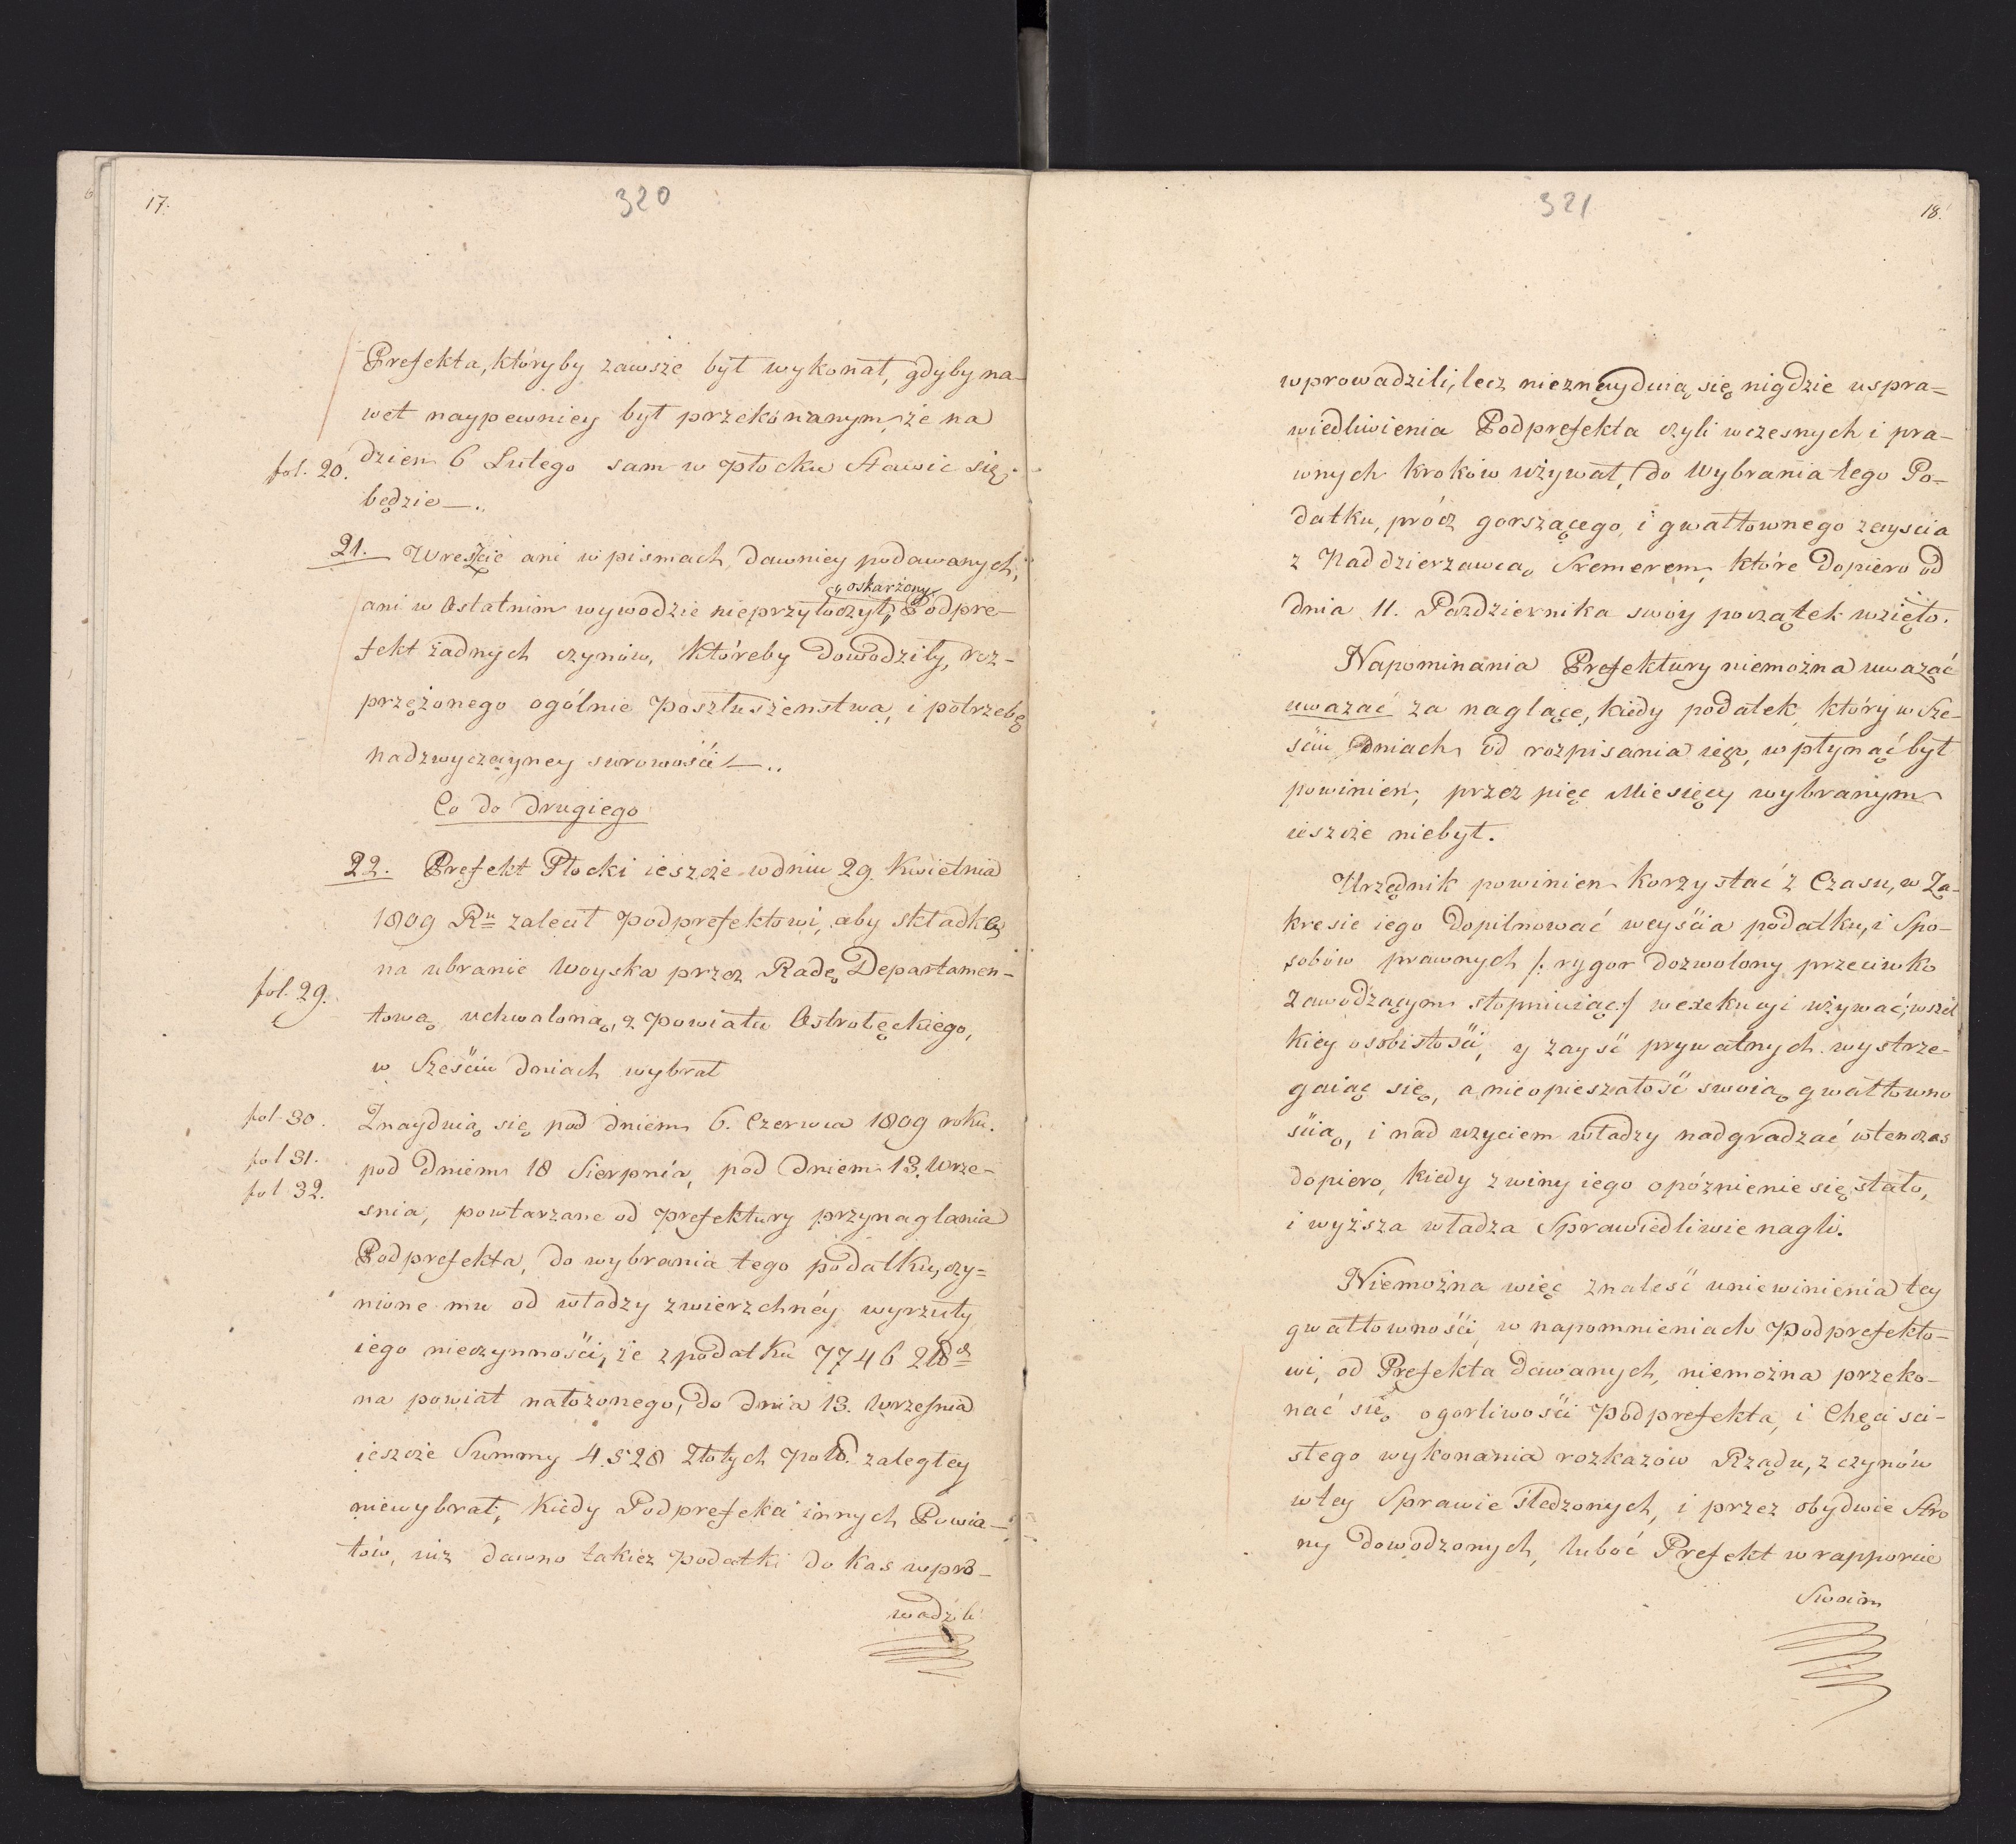 17.
320
Prefekta, któryby zawsze był wykonał, gdyby na-
wet naypewniey był przekonanym, że na
fol. 20. dzien 6 Lutego sam w Płocku Stawić się
będzie —..
21. Wreszcie ani w pismach, dawniey podawanych,
oskarżony
ani w Ostatnim wywodzie nieprzytoczył, Podpre-
fekt żadnych czynów, któreby dowodziły, roz-
przężonego ogólnie Poszłuszenstwa, i potrzebę
nadzwyczayney surowości —..
Co do drugiego
22. Prefekt Płocki ieszcze w dniu 29. Kwietnia
1809 Ru zalecił Podprefektowi, aby składkę
na ubranie Woyska przez Radę Departamen-
fol. 29.
tową uchwaloną, z Powiatu Ostrołęckiego,
w Sześciu dniach wybrał
fol. 30. Znayduią się pod dniem 6. Czerwca 1809 roku.
fol 31. pod Dniem 18 Sierpnia, pod Dniem 13. Wrze-
fol 32.
snia, powtarzane od Prefektury przynaglania
Podprefekta, do wybrania tego podatku, czy=
nione mu od władzy zwierzchnéy wyrzuty
iego nieczynności, że z podatku 7746
na powiat nałożonego, do dnia 13. Września
ieszcze Summy 4.528 Złotych Pol. zaległey
niewybrał, Kiedy Podprefekci innych Powia-
tów, iuż dawno takież Podatki do Kas wpro-
wadzili
321
18.
wprowadzili, lecz nieznayduią się nigdzie uspra-
wiedliwienia Podprefekta czyli wczesnych i pra-
wnych kroków używał, do Wybrania tego Po-
datku, prócz gorszącego, i gwałtownego zayscia
z Naddzierzawcą Kremerem, które Dopiero od
dnia 11. Pazdziernika swóy początek wzięło.
Napominania Prefektury niemożna uważać
uwazać za naglące, kiedy podatek, który w Sze-
ściu Dniach od rozpisania iego, wpłynąć był
powinien, przez pięć Miesięcy wybranym
ieszcze niebył.
Urzędnik powinien Korzystać z Czasu, w Za-
kresie iego Dopilnować weyścia podatku, i Spo-
sobów prawnych /: rygor dozwolony przeciwko
Zawodzącym stopniuiąc:/ w exekucyi używać, wszel
kiey osobistości, y zayść prywatnych wystrze-
gaiąc się, a nieopieszałość swoią gwałtowno
ścią, i nad użyciem władzy nadgradzać wtenczas
dopiero, kiedy z winy iego opóźnienie się stało,
i wyższa władza Sprawiedliwie nagli.
Niemożna więc znaleść uniewinienia tey
gwałtowności, w napomnieniach Podprefekto-
wi, od Prefekta Dawanych, niemożna przeko-
nać się o gorliwości Podprefekta, i Chęci sci-
słego wykonania rozkazów Rządu, z czynów
w tey Sprawie śledzonych, i przez obydwie Stro
ny Dowodzonych, luboć Prefekt w rapporcie
Swoim